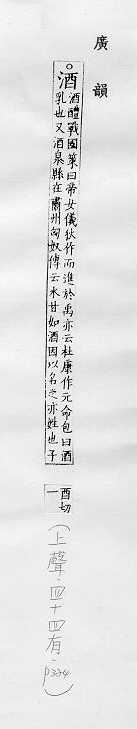 廣韻
○酒 酒醴戰國策曰帝女儀狄作而進於禹亦云杜康作元命包曰酒
乳也又酒泉縣在肅州匈奴傳云水甘如酒因以名之亦姓也子
酉切
一
(上聲·四十四有·p324)